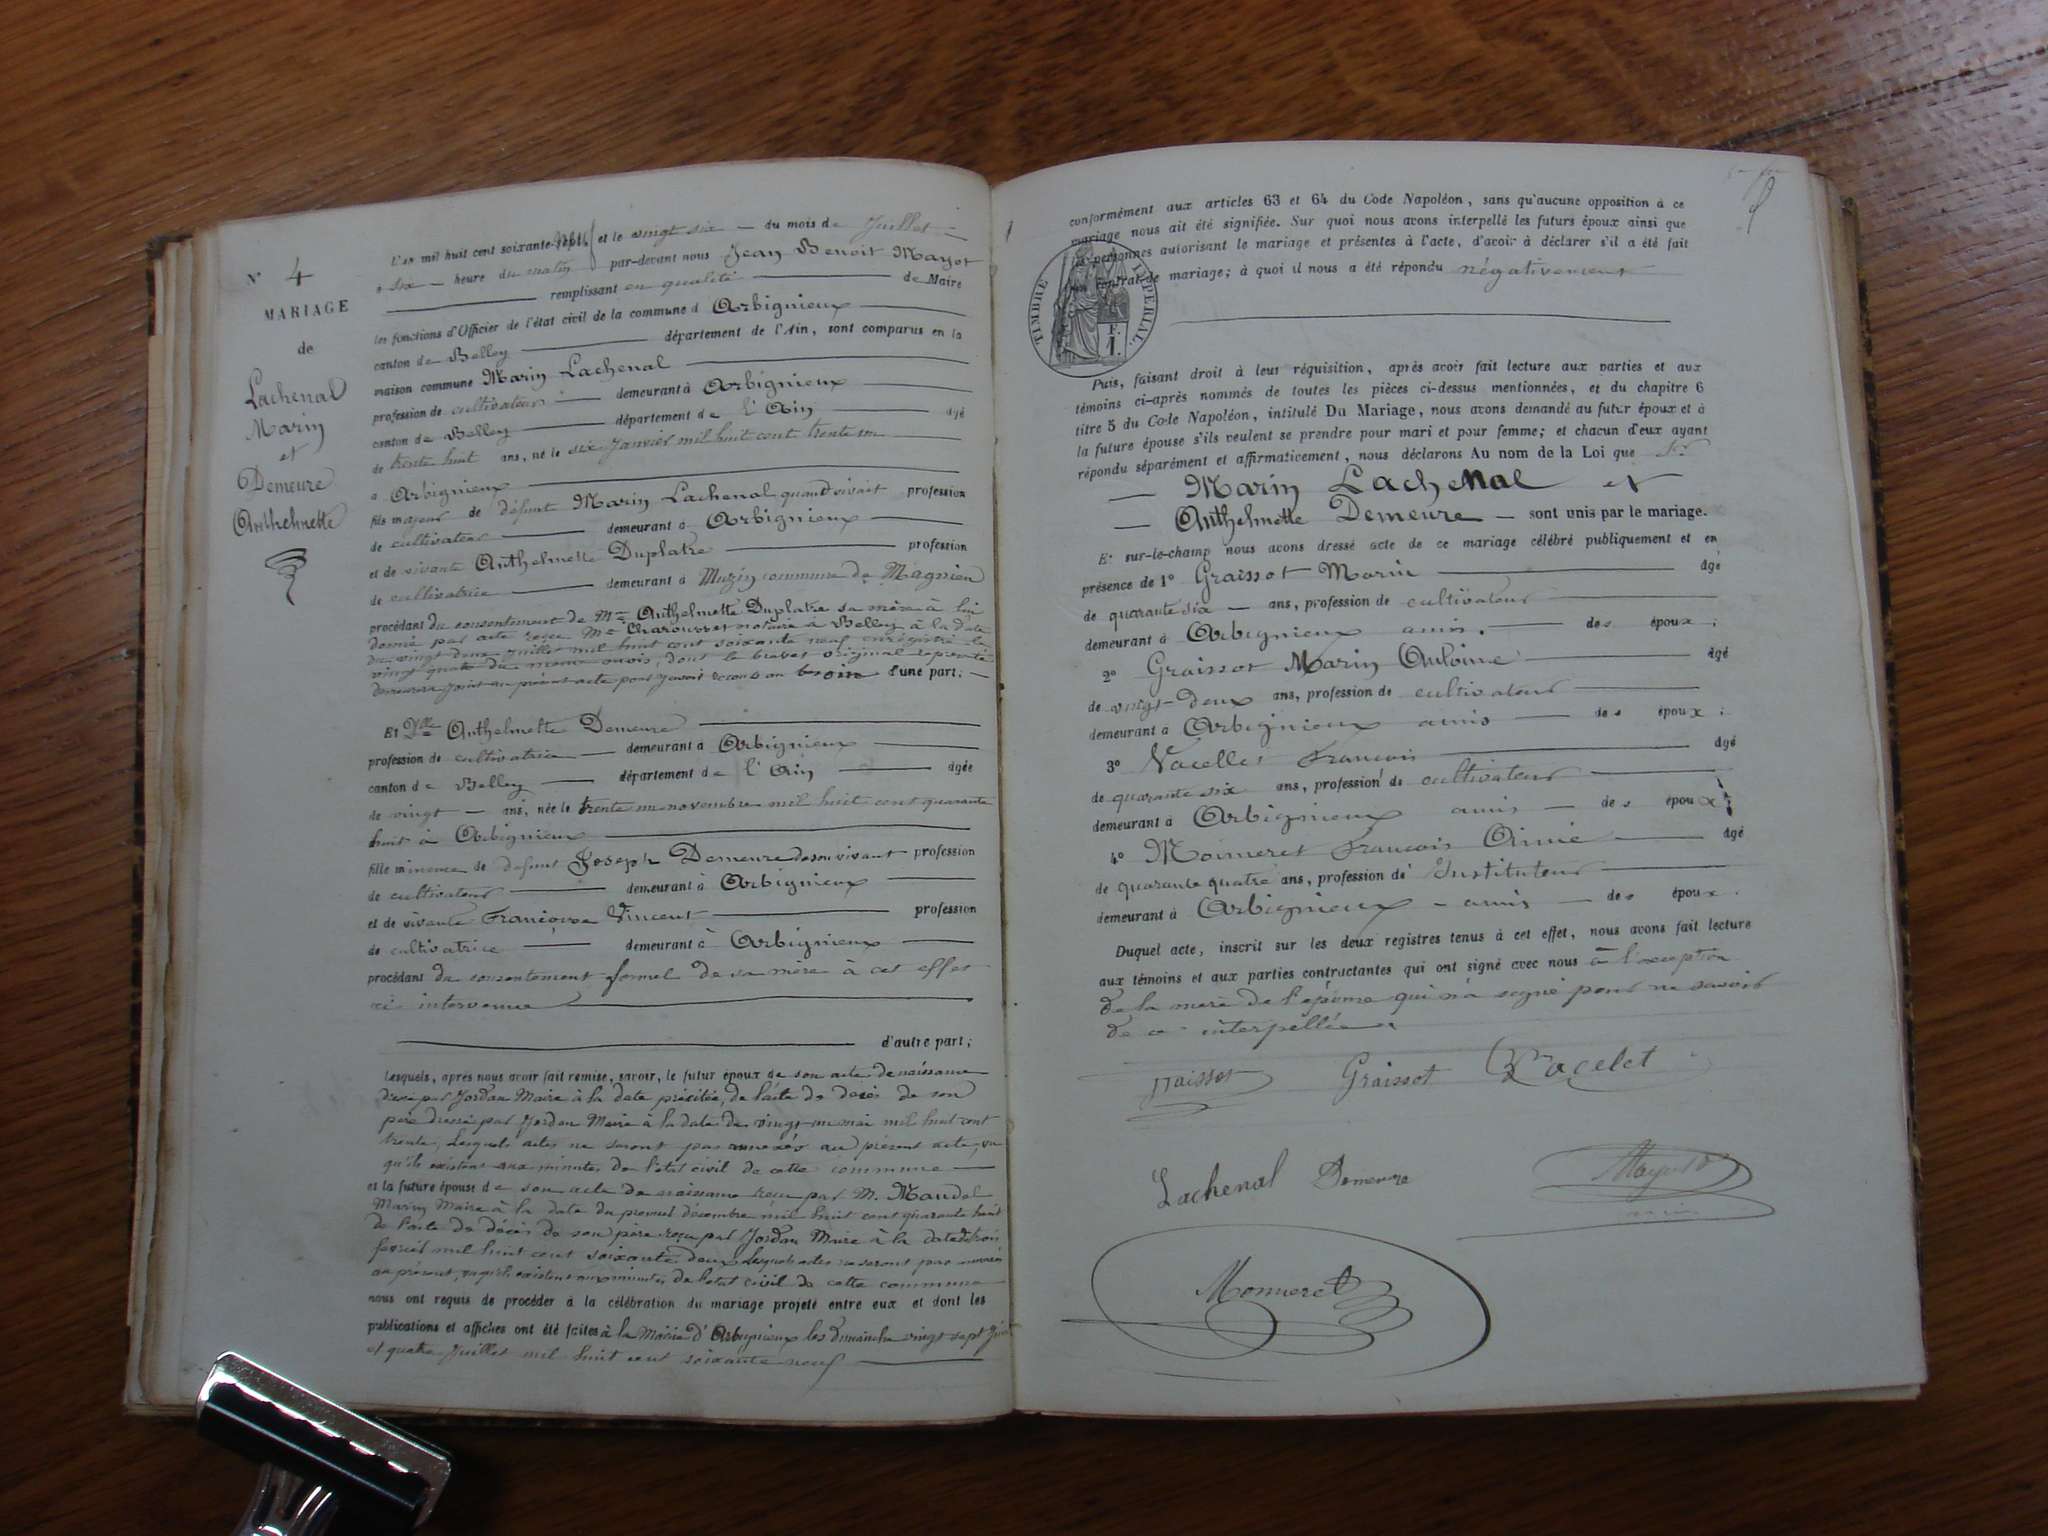 N° 4
MARIAGE
de
Lachenal
Marin
et
Demeure
Anthelmette
L'an mil huit cent soixante et le vingt six du mois de Juillet
à six heure du matin par-devant nous Jean Benoit Mayot
remplissant en qualité de Maire
les fonctions d'Officier de l'état civil de la commune d Arbignieux
canton de Belley département de l'Ain, sont comparus en la
maison commune Marin Lachenal
profession de cultivateur demeurant à Arbignieux
canton de Belley département de l'Ain âgé
de trente huit ans, né le six Janvier mil huit cent trente un
à Arbignieux
fils majeur de défunt Marin Lachenal quand vivait profession
de cultivateur demeurant à Arbignieux
et de vivante Anthelmette Duplatre profession
de cultivatrice demeurant à Muzin commune de Magnieu
procédant du consentement de Me Anthelmette Duplatre sa mère à lui
donné par acte reçu Me notaire à Belley à la date
du vingt deux Juillet mil huit cent soixante neuf enregistré le
vingt quatre du même mois, dont le brevet original représenté
demeurera joint au présent acte pour y avoir recours au besoin d'une part;
Et Dlle Anthelmette Demeure
profession de cultivatrice demeurant à Arbignieux
canton de Belley département de l'Ain âgée
de vingt ans, née le trente un novembre mil huit cent quarante
huit à Arbignieux
fille mineure de défunt Joseph Demeure de son vivant profession
de cultivateur demeurant à Arbignieux
et de vivante Françoise Vincent profession
de cultivatrice demeurant à Arbignieux
procédant du consentement formel de sa mère à cet effet
ici intervenue
d'autre part;
Lesquels, après nous avoir fait remise, savoir, le futur époux de son acte de naissance
dressé par Jordan Maire à la date précitée, de l'acte de décès de son
père dressé par Jordan Maire à la date du vingt un mai mil huit cent
trente, Lesquels actes ne seront pas annexés au présent acte, vu
qu'ils existent aux minutes de l'état civil de cette commune
et la future épouse de son acte de naissance reçu par M. Maudel
Marin Maire à la date du premier décembre mil huit cent quarante huit
de l'acte de décès de son père reçu par Jordan Maire à la date du trois
fevrier mil huit cent soixante deux Lesquels actes ne seront pas annexés
au présent, vu qu'ils existent aux minutes de l'état civil de cette commune
nous ont requis de procéder à la célébration du mariage projeté entre eux et dont les
publications et affiches ont été faites à la Mairie d'Arbignieux les dimanche vingt sept Juin
et quatre Juillet mil huit cent soixante neuf
conformément aux articles 63 et 64 du Code Napoléon, sans qu'aucune opposition à ce
mariage nous ait été signifiée. Sur quoi nous avons interpellé les futurs époux ainsi que
les personnes autorisant le mariage et présentes à l'acte, d'avoir à déclarer s'il a été fait
un contrat de mariage; à quoi il nous a été répondu négativement
TIMBRE IMPERIAL.
F.
1.
Puis, faisant droit à leur réquisition, après avoir fait lecture aux parties et aux
témoins ci-après nommés de toutes les pièces ci-dessus mentionnées, et du chapitre 6
titre 5 du Code Napoléon, intitulé Du Mariage, nous avons demandé au futur époux et à
la future épouse s'ils veulent se prendre pour mari et pour femme; et chacun d'eux ayant
répondu séparément et affirmativement, nous déclarons Au nom de la Loi que Sr
Marin Lachenal et
Anthelmette Demeure sont unis par le mariage.
Et sur-le-champ nous avons dressé acte de ce mariage célébré publiquement et en
présence de 1° Graissot Marin âgé
de quarante six ans, profession de cultivateur
demeurant à Arbignieux amis. des époux;
2° Graissot Marin Antoine âgé
de vingt-deux ans, profession de cultivateur
demeurant à Arbignieux amis des époux;
3° Vacellet François âgé
de quarante six ans, profession de cultivateur
demeurant à Arbignieux amis des époux;
4° Moimeret François Aimé âgé
de quarante quatre ans, profession de Instituteur
demeurant à Arbignieux - amis des époux.
Duquel acte, inscrit sur les deux registres tenus à cet effet, nous avons fait lecture
aux témoins et aux parties contractantes qui ont signé avec nous à l'exception
de la mère de l'épouse qui n'a signé pour ne savoir
de ce interpellée
Graissot Graissot Vacelet
Lachenal Demeure Mayot
Monneret